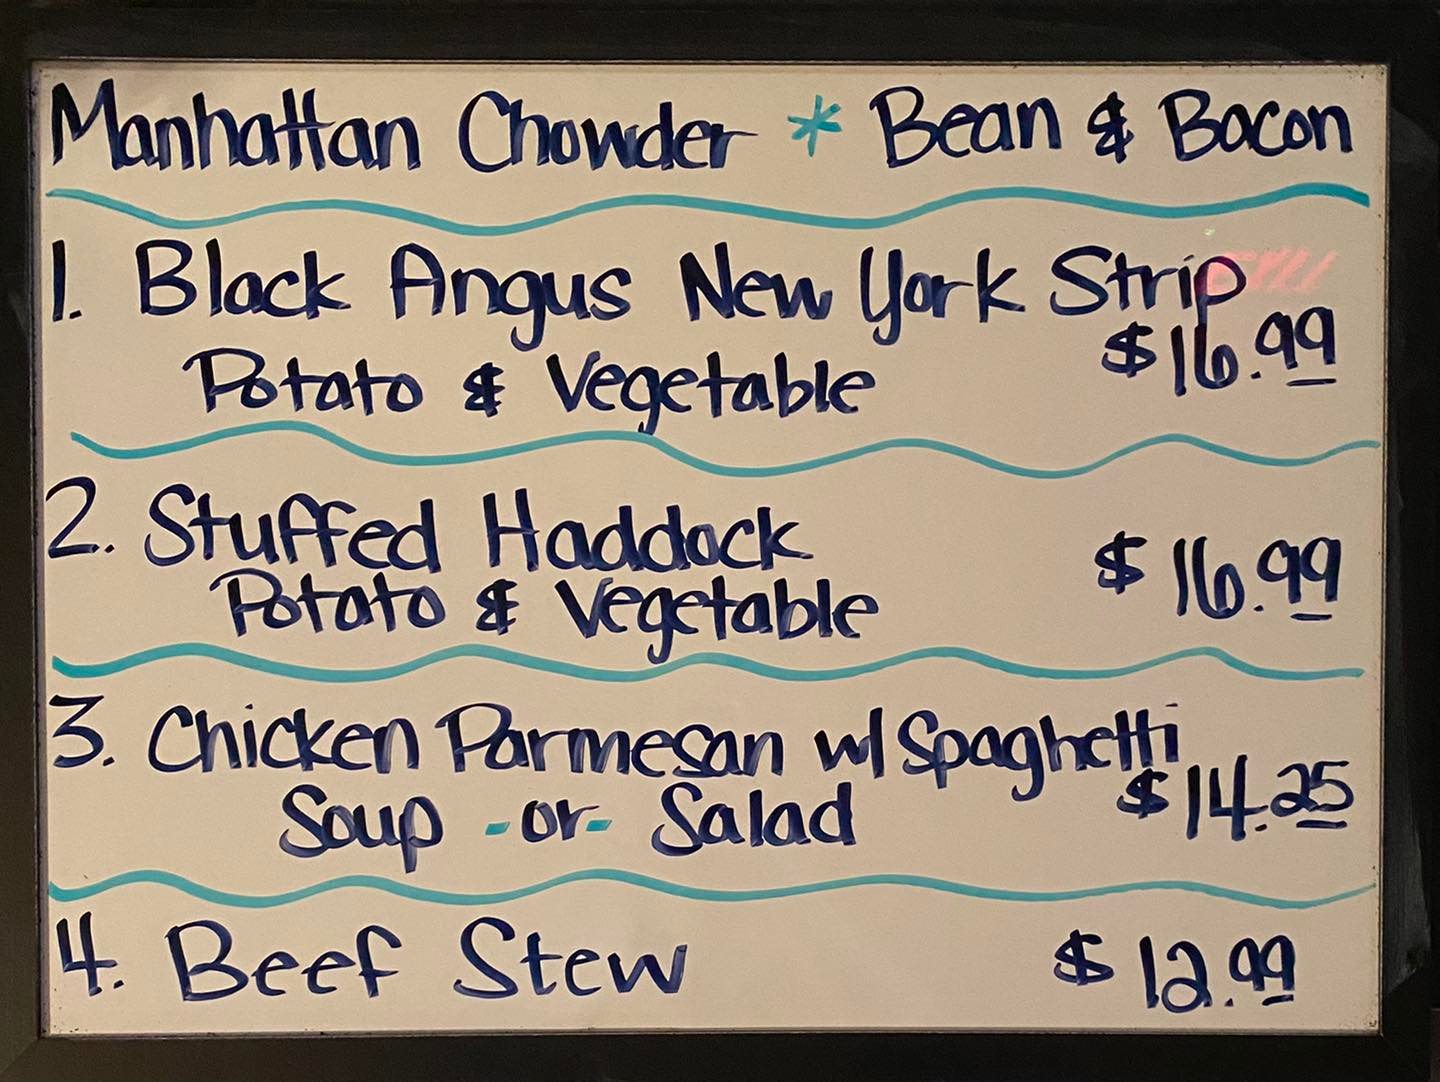 Manhattan Chowder * Bean & Bacon
1. Black Angus New York Strip
Potato & Vegetable $16.99
2. Stuffed Haddock
Potato & Vegetable $16.99
3. Chicken Parmesan w/ Spaghetti
Soup -or- Salad $14.25
4. Beef Stew $12.99